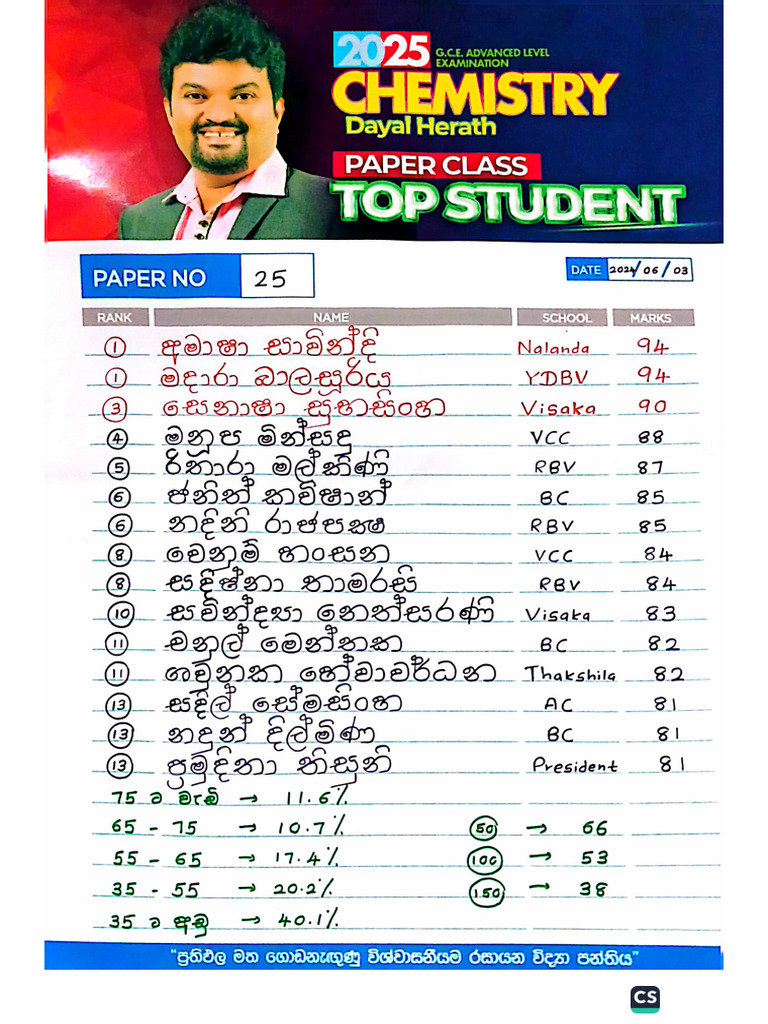 2025 G.C.E. ADVANCED LEVEL EXAMINATION
CHEMISTRY
Dayal Herath
PAPER CLASS
TOP STUDENT
PAPER NO 25 DATE 2024/06/03
RANK NAME SCHOOL MARKS
1 අමාෂා සාවින්දි Nalanda 94
1 මදාරා බාලසූරිය YDBV 94
3 සෙනාෂා සුභසිංහ Visaka 90
4 මනූප මින්සඳු VCC 88
5 රිතාරා මල්කිණි RBV 87
6 ජනිත් කවිෂාන් BC 85
6 නදිනි රාජපක්ෂ RBV 85
8 චෙනුම් හංසන VCC 84
8 සදිෂ්නා තාමරසි RBV 84
10 සවින්ද්‍යා නෙත්සරණි Visaka 83
11 චනුල් මෙන්තක BC 82
11 ශවුනක හේවාවර්ධන Thakshila 82
13 සදිල් සේමසිංහ AC 81
13 නදුන් දිල්මිණ BC 81
13 ප්‍රමුදිතා තිසුනි President 81
75 ට වැඩි → 11.6%
65 - 75 → 10.7% 50 → 66
55 - 65 → 17.4% 100 → 53
35 - 55 → 20.2% 150 → 38
35 ට අඩු → 40.1%
"ප්‍රතිඵල මත ගොඩනැඟුණු විශ්වාසනීයම රසායන විද්‍යා පන්තිය"
CS